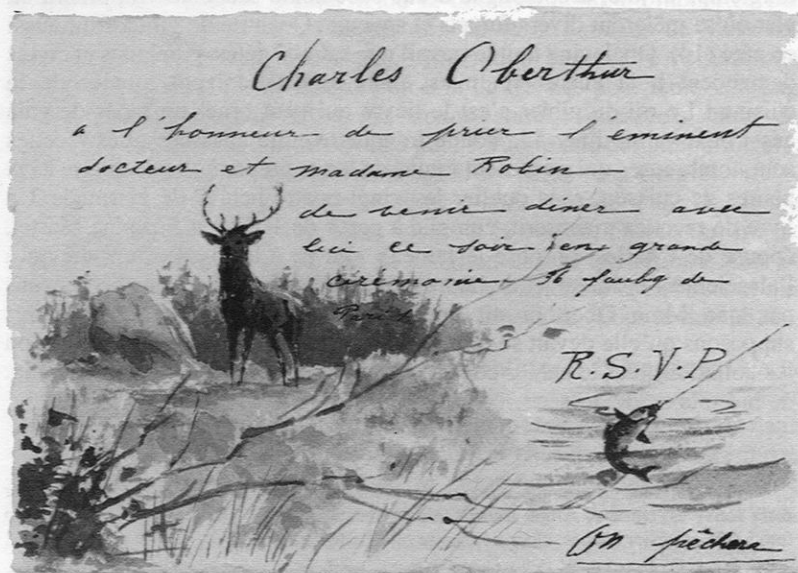 Charles Oberthur
a l'honneur de prier l'eminent
docteur et madame Robin
de venir diner avec
lui ce soir en grande
ceremonie 36 faubg de
Paris
R.S.V.P
On pêchera